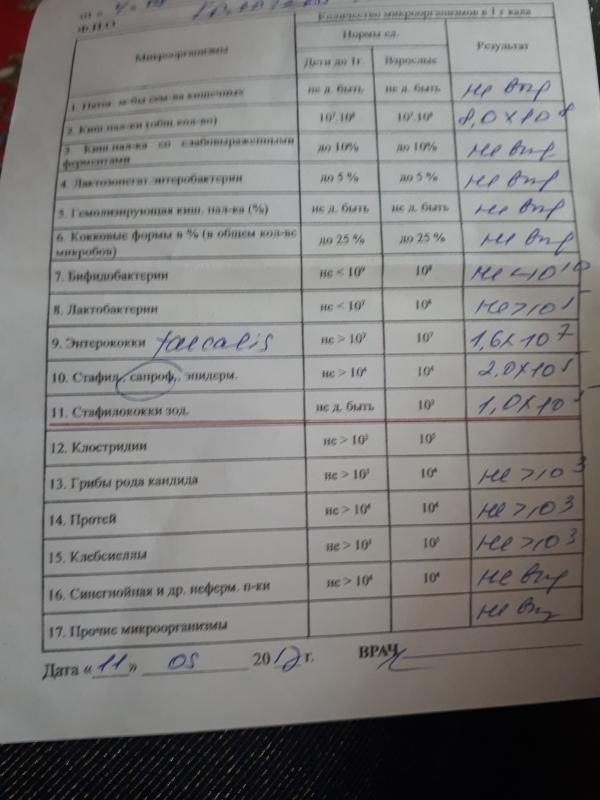 Ф.И.О.
Количество микроорганизмов в 1 г кала
Микроорганизмы
Нормы ед.
Результат
Дети до 1г.
Взрослые
1. Патог. м-бы сем-ва кишечных не д. быть не д. быть не выд
2. Киш.пал-ки (общ.кол-во) 10⁷-10⁸ 10⁷-10⁸ 8,0×10⁸
3. Киш.пал-ка со слабовыраженными
ферментами до 10% до 10% не выд
4. Лактозонегат.энтеробактерии до 5 % до 5 % не выд
5. Гемолизирующая киш. пал-ка (%) не д. быть не д. быть не выд
6. Кокковые формы в % (в общем кол-ве
микробов) до 25 % до 25 % не выд
7. Бифидобактерии не < 10⁹ 10⁸ не <10¹⁰
8. Лактобактерии не < 10⁷ 10⁶ не >10⁵
9. Энтерококки faecalis не > 10⁷ 10⁷ 1,6×10⁷
10. Стафил. сапроф., эпидерм. не > 10⁴ 10⁴ 2,0×10⁵
11. Стафилококки зол. не д. быть 10³ 1,0×10⁵
12. Клостридии не > 10³ 10⁵
13. Грибы рода кандида не > 10³ 10⁴ не >10³
14. Протей не > 10⁴ 10⁴ не >10³
15. Клебсиеллы не > 10⁴ не >10³
16. Синегнойная и др. неферм. п-ки не > 10⁴ 10⁴ не выд
17. Прочие микроорганизмы не выд
Дата «11» 05 2017 г. ВРАЧ